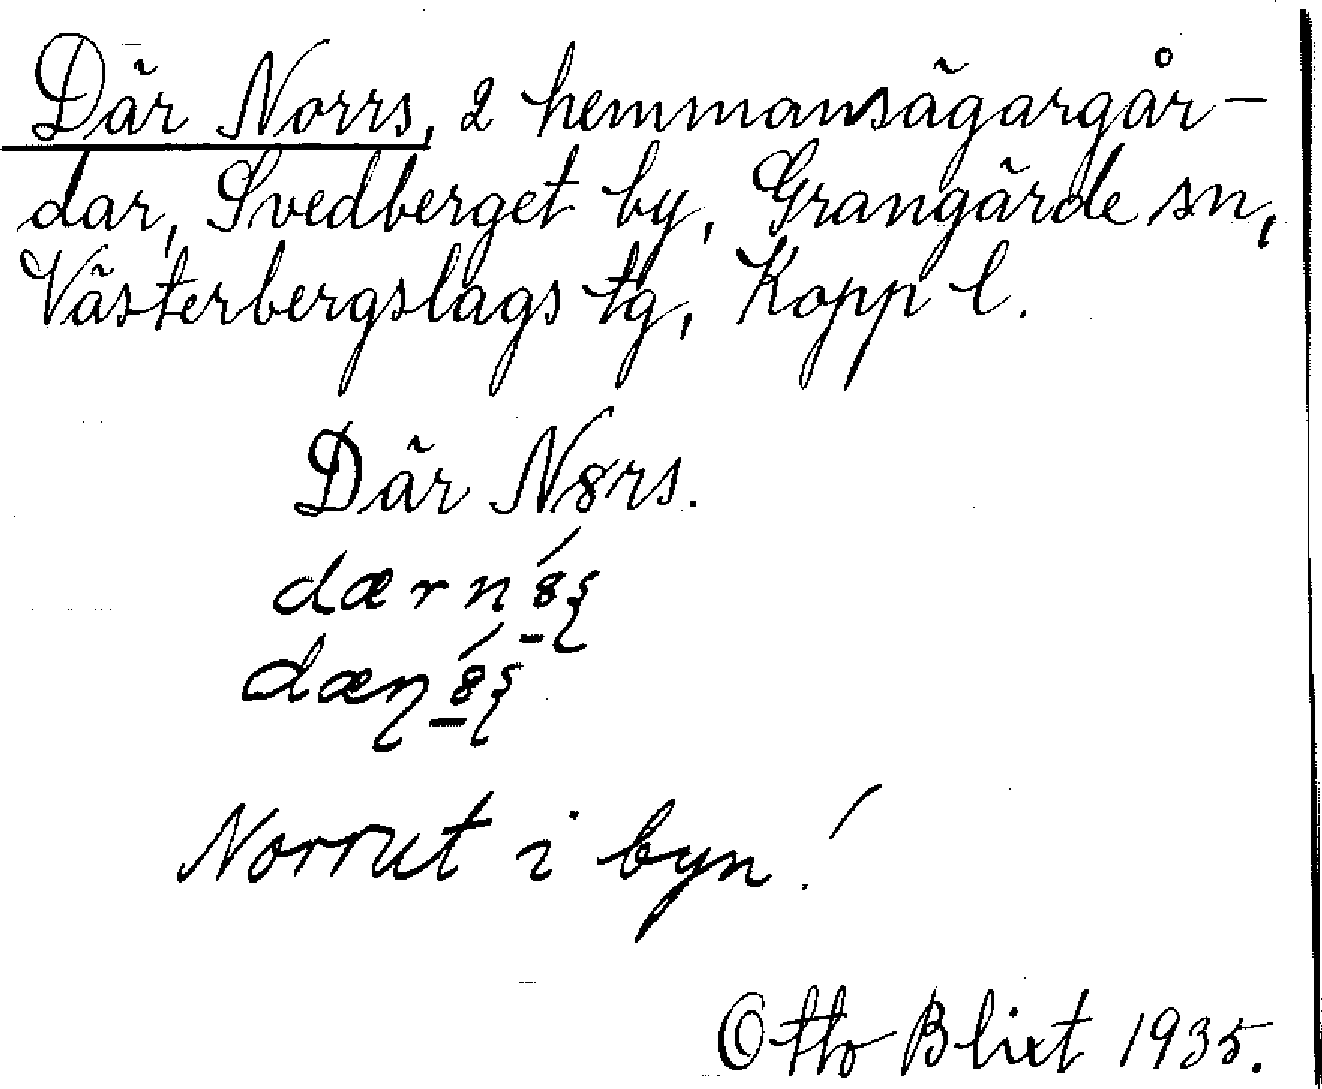 Där Norrs, 2 hemmansägargår-
dar, Svedberget by, Grangärde sn,
Västerbergslags tg, Kopp l.
Där N8rs.
dærn8́ʂ
dæɳ8́ʂ
Norrut i byn!
Otto Blixt 1935.